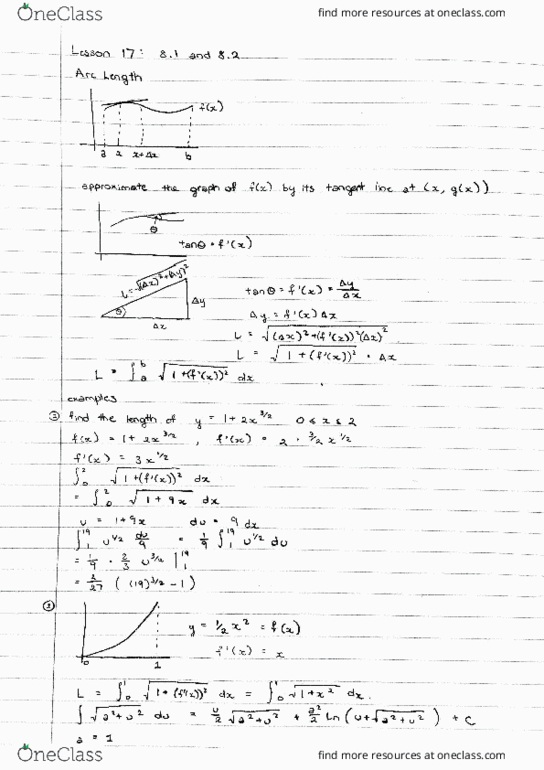 OneClass
find more resources at oneclass.com
Lesson 17: 8.1 and 8.2
Arc Length
f(x)
a x x+Δx b
approximate the graph of f(x) by its tangent line at (x, g(x))
θ
tanθ = f'(x)
L = √(Δx)²+(Δy)²
θ
Δy
Δx
tanθ = f'(x) = Δy/Δx
Δy = f'(x) Δx
L = √(Δx)²+(f'(x))²(Δx)²
L = √1+(f'(x))² · Δx
L = ∫ₐᵇ √1+(f'(x))² dx
examples
① find the length of y = 1+2x^3/2 0 ≤ x ≤ 2
f(x) = 1+2x^3/2, f'(x) = 2 · 3/2 x^1/2
f'(x) = 3x^1/2
∫₀² √1+(f'(x))² dx
= ∫₀² √1+9x dx
u = 1+9x du = 9 dx
∫₁¹⁹ u^1/2 du/9 = 1/9 ∫₁¹⁹ u^1/2 du
= 1/9 · 2/3 u^3/2 |₁¹⁹
= 2/27 ((19)^3/2 - 1)
②
0 1
y = 1/2 x² = f(x)
f'(x) = x
L = ∫₀¹ √1+(f'(x))² dx = ∫₀¹ √1+x² dx.
∫ √a²+u² du = u/2 √a²+u² + a²/2 ln(u+√a²+u²) + C
a = 1
OneClass
find more resources at oneclass.com